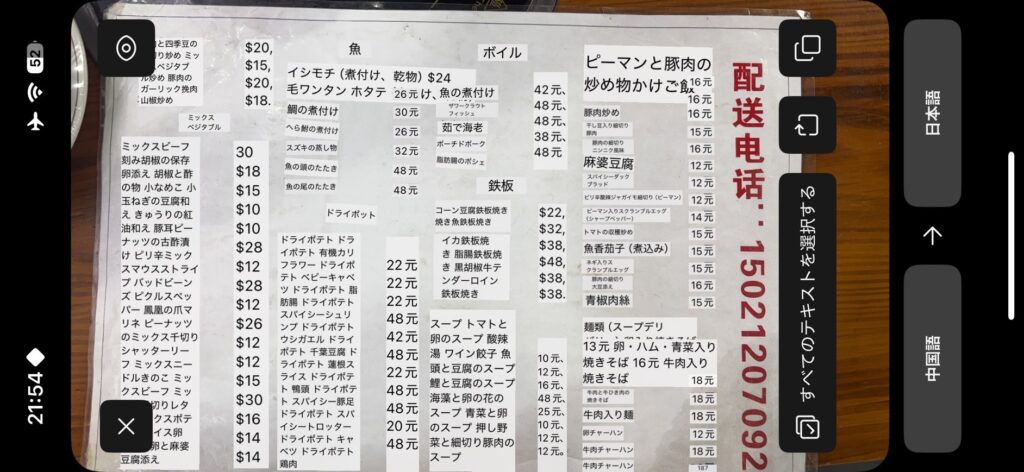 21:54
52
肉と四季豆の
切り炒め ミッ
クスベジタブ
ル炒め 豚肉の
ガーリック挽肉
山椒炒め
$20,
$15,
$20,
$18.
ミックス
ベジタブル
ミックスビーフ
刻み胡椒の保存
卵添え 胡椒と酢
の物 小なめこ 小
玉ねぎの豆腐和
え きゅうりの紅
油和え 豚耳ピー
ナッツの古酢漬
け ピリ辛ミック
スマウスストライ
プ パッドビーン
ズ ピクルスペッ
パー 鳳凰の爪マ
リネ ピーナッツ
のミックス千切り
シャッターリー
フ ミックスニー
ドルきのこ ミッ
クスビーフ ミッ
切りレタ
クスポテ
イス卵
卵と麻婆
豆腐添え
30
$18
$15
$10
$10
$28
$12
$28
$12
$26
$12
$12
$15
$30
$16
$14
$14
魚
イシモチ (煮付け、乾物) $24
毛ワンタン ホタテ
26元
け、魚の煮付け
鯛の煮付け
30元
へら鮒の煮付け
26元
スズキの蒸し物
32元
魚の頭のたたき
48元
魚の尾のたたき
48元
ドライポット
ドライポテト ドラ
イポテト 有機カリ
フラワー ドライポ
テト ベビーキャベ
ツ ドライポテト 脂
肪腸 ドライポテト
スパイシーシュリ
ンプ ドライポテト
ウシガエル ドライ
ポテト 千葉豆腐 ド
ライポテト 蓮根ス
ライス ドライポテ
ト 鴨頭 ドライポテ
ト スパイシー豚足
ドライポテト スパ
イシートロッター
ドライポテト キャ
ベツ ドライポテト
鶏肉
22元
22元
22元
48元
42元
48元
22元
48元
48元
20元
48元
ボイル
ザワークラウト
フィッシュ
茹で海老
ポーチドポーク
脂肪腸のポシェ
42元、
48元、
48元、
38元、
48元
鉄板
コーン豆腐鉄板焼き
焼き魚鉄板焼き
イカ鉄板焼
き 脂腸鉄板焼
き 黒胡椒牛テ
ンダーロイン
鉄板焼き
$22,
$32,
$38,
$48,
$38,
$38.
スープ トマトと
卵のスープ 酸辣
湯 ワイン餃子 魚
頭と豆腐のスープ
鯉と豆腐のスープ
海藻と卵の花の
スープ 青菜と卵
のスープ 押し野
菜と細切り豚肉の
スープ
10元、
12元、
16元、
48元、
25元、
10元、
12元、
12元。
ピーマンと豚肉の
炒め物かけご飯
16元
16元
豚肉炒め
16元
干し豆入り細切り
豚肉
15元
豚肉の細切り
ニンニク風味
16元
麻婆豆腐
12元
スパイシーダック
ブラッド
12元
ピリ辛酸辣ジャガイモ細切り (ピーマン)
12元
ピーマン入りスクランブルエッグ
(シャープペッパー)
14元
トマトの収穫炒め
15元
魚香茄子 (煮込み)
15元
ネギ入りス
クランブルエッグ
15元
豚肉の細切り
大豆添え
16元
青椒肉絲
15元
麺類 (スープデリ
13元 卵・ハム・青菜入り
焼きそば 16元 牛肉入り
焼きそば
18元
牛肉と牛ひき肉の
焼きそば
18元
牛肉入り麺
18元
卵チャーハン
12元
牛肉チャーハン
18元
牛肉チャーハン
187
配送电话：15021207092
すべてのテキストを選択する
日本語
中国語